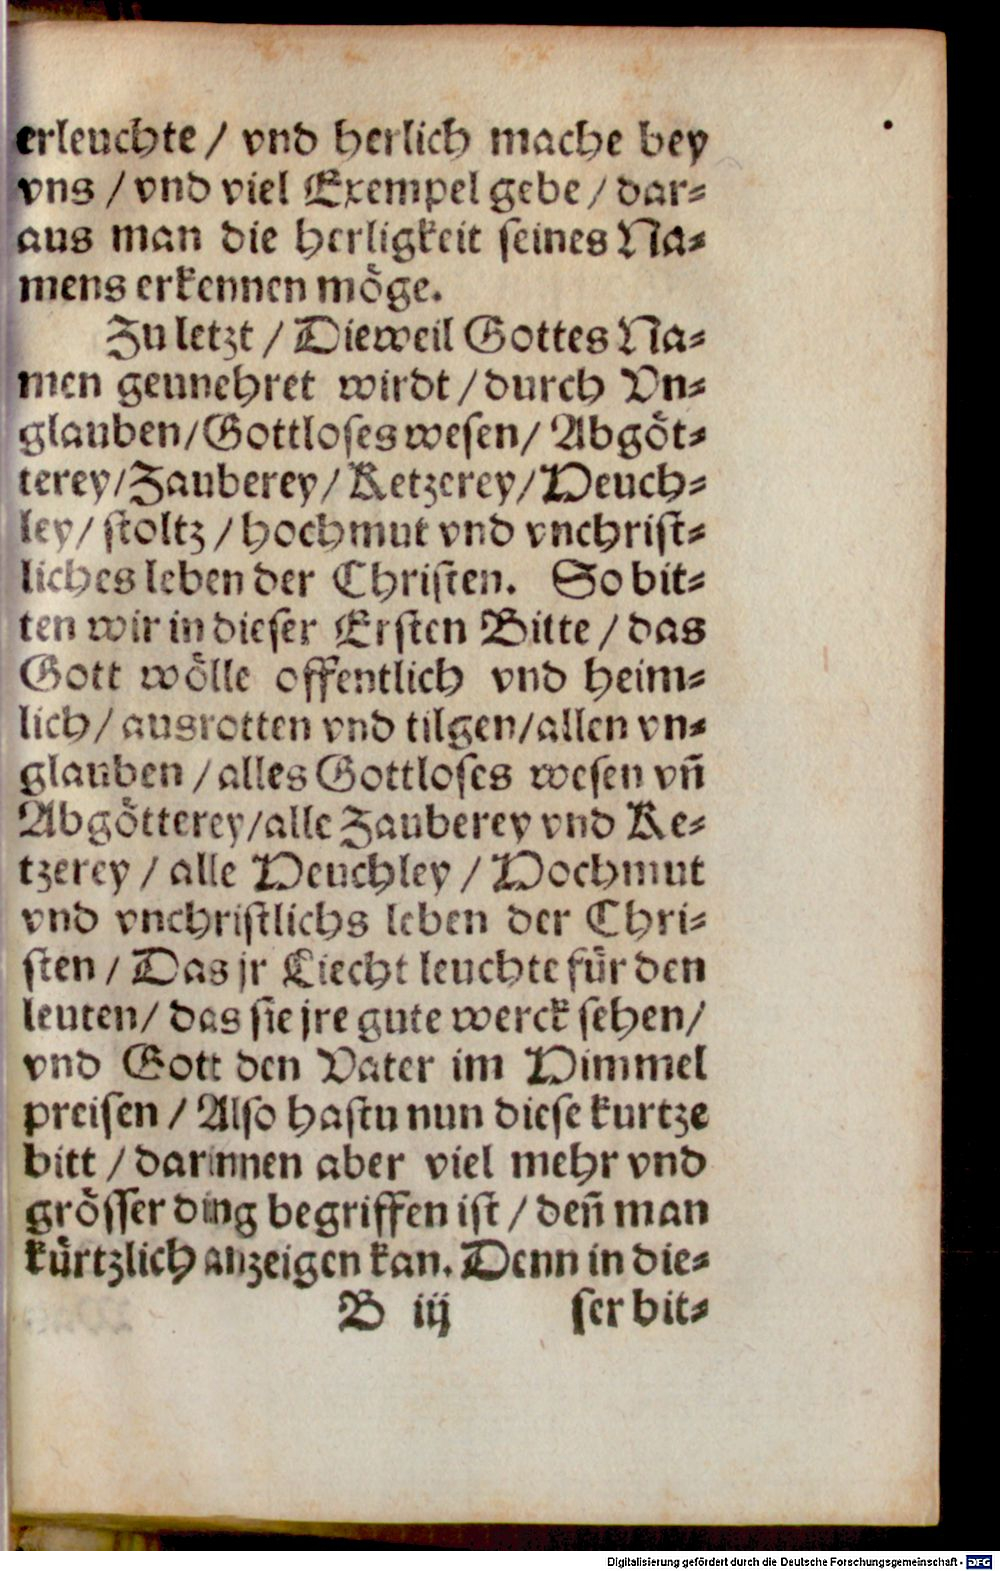 erleuchte / vnd herlich mache bey
vns / vnd viel Exempel gebe / dar⸗
aus man die herligkeit seines Na⸗
mens erkennen möge.
Zu letzt / Dieweil Gottes Na⸗
men geunehret wirdt / durch Vn⸗
glauben / Gottloses wesen / Abgöt⸗
terey / Zauberey / Ketzerey / Heuch⸗
ley / stoltz / hochmut vnd vnchrist⸗
liches leben der Christen. So bit⸗
ten wir in dieser Ersten Bitte / das
Gott wölle offentlich vnd heim⸗
lich / ausrotten vnd tilgen / allen vn⸗
glauben / alles Gottloses wesen vn̄
Abgötterey / alle Zauberey vnd Ke⸗
tzerey / alle Heuchley / Hochmut
vnd vnchristlichs leben der Chri⸗
sten / Das jr Liecht leuchte für den
leuten / das sie jre gute werck sehen /
vnd Gott den Vater im Himmel
preisen / Also hastu nun diese kurtze
bitt / darinnen aber viel mehr vnd
grösser ding begriffen ist / den̄ man
kürtzlich anzeigen kan. Denn in die⸗
B iij ser bit⸗
Digitalisierung gefördert durch die Deutsche Forschungsgemeinschaft - DFG